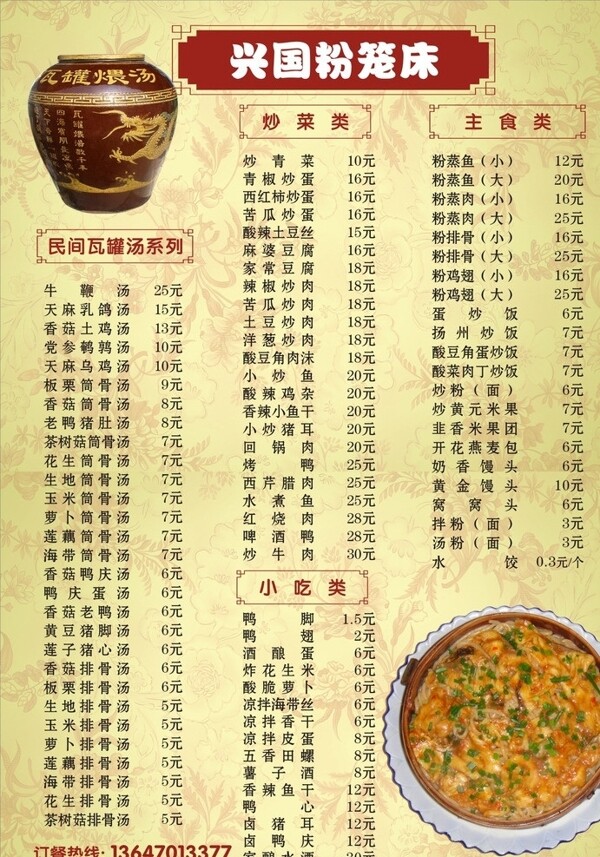 兴国粉笼床
瓦罐煨汤
民间瓦罐汤系列
牛鞭汤 25元
天麻乳鸽汤 15元
香菇土鸡汤 13元
党参鹌鹑汤 10元
天麻乌鸡汤 10元
板栗筒骨汤 9元
香菇筒骨汤 8元
老鸭猪肚汤 8元
茶树菇筒骨汤 7元
花生筒骨汤 7元
生地筒骨汤 7元
玉米筒骨汤 7元
萝卜筒骨汤 7元
莲藕筒骨汤 7元
海带筒骨汤 7元
香菇鸭庆汤 6元
鸭庆蛋汤 6元
香菇老鸭汤 6元
黄豆猪脚汤 6元
莲子猪心汤 6元
香菇排骨汤 6元
板栗排骨汤 6元
生地排骨汤 5元
玉米排骨汤 5元
萝卜排骨汤 5元
莲藕排骨汤 5元
海带排骨汤 5元
花生排骨汤 5元
茶树菇排骨汤 5元
订餐热线: 13647013377
炒菜类
炒青菜 10元
青椒炒蛋 16元
西红柿炒蛋 16元
苦瓜炒蛋 16元
酸辣土豆丝 15元
麻婆豆腐 16元
家常豆腐 18元
辣椒炒肉 18元
苦瓜炒肉 18元
土豆炒肉 18元
洋葱炒肉 18元
酸豆角肉沫 18元
小炒鱼 20元
酸辣鸡杂 20元
香辣小鱼干 20元
小炒猪耳 20元
回锅肉 20元
烤鸭 25元
西芹腊肉 25元
水煮鱼 25元
红烧肉 28元
啤酒鸭 28元
炒牛肉 30元
小吃类
鸭脚 1.5元
鸭翅 2元
酒酿蛋 6元
炸花生米 6元
酸脆萝卜 6元
凉拌海带丝 6元
凉拌香干 6元
凉拌皮蛋 8元
五香田螺 8元
薯子酒 8元
香辣鱼干 12元
鸭心 12元
卤猪耳 12元
卤鸭庆 12元
家酿水酒 20元
主食类
粉蒸鱼(小) 12元
粉蒸鱼(大) 20元
粉蒸肉(小) 16元
粉蒸肉(大) 25元
粉排骨(小) 16元
粉排骨(大) 25元
粉鸡翅(小) 16元
粉鸡翅(大) 25元
蛋炒饭 6元
扬州炒饭 7元
酸豆角蛋炒饭 7元
酸菜肉丁炒饭 7元
炒粉(面) 6元
炒黄元米果 7元
韭香米果团 7元
开花燕麦包 6元
奶香馒头 6元
黄金馒头 10元
窝窝头 6元
拌粉(面) 3元
汤粉(面) 3元
水饺 0.3元/个